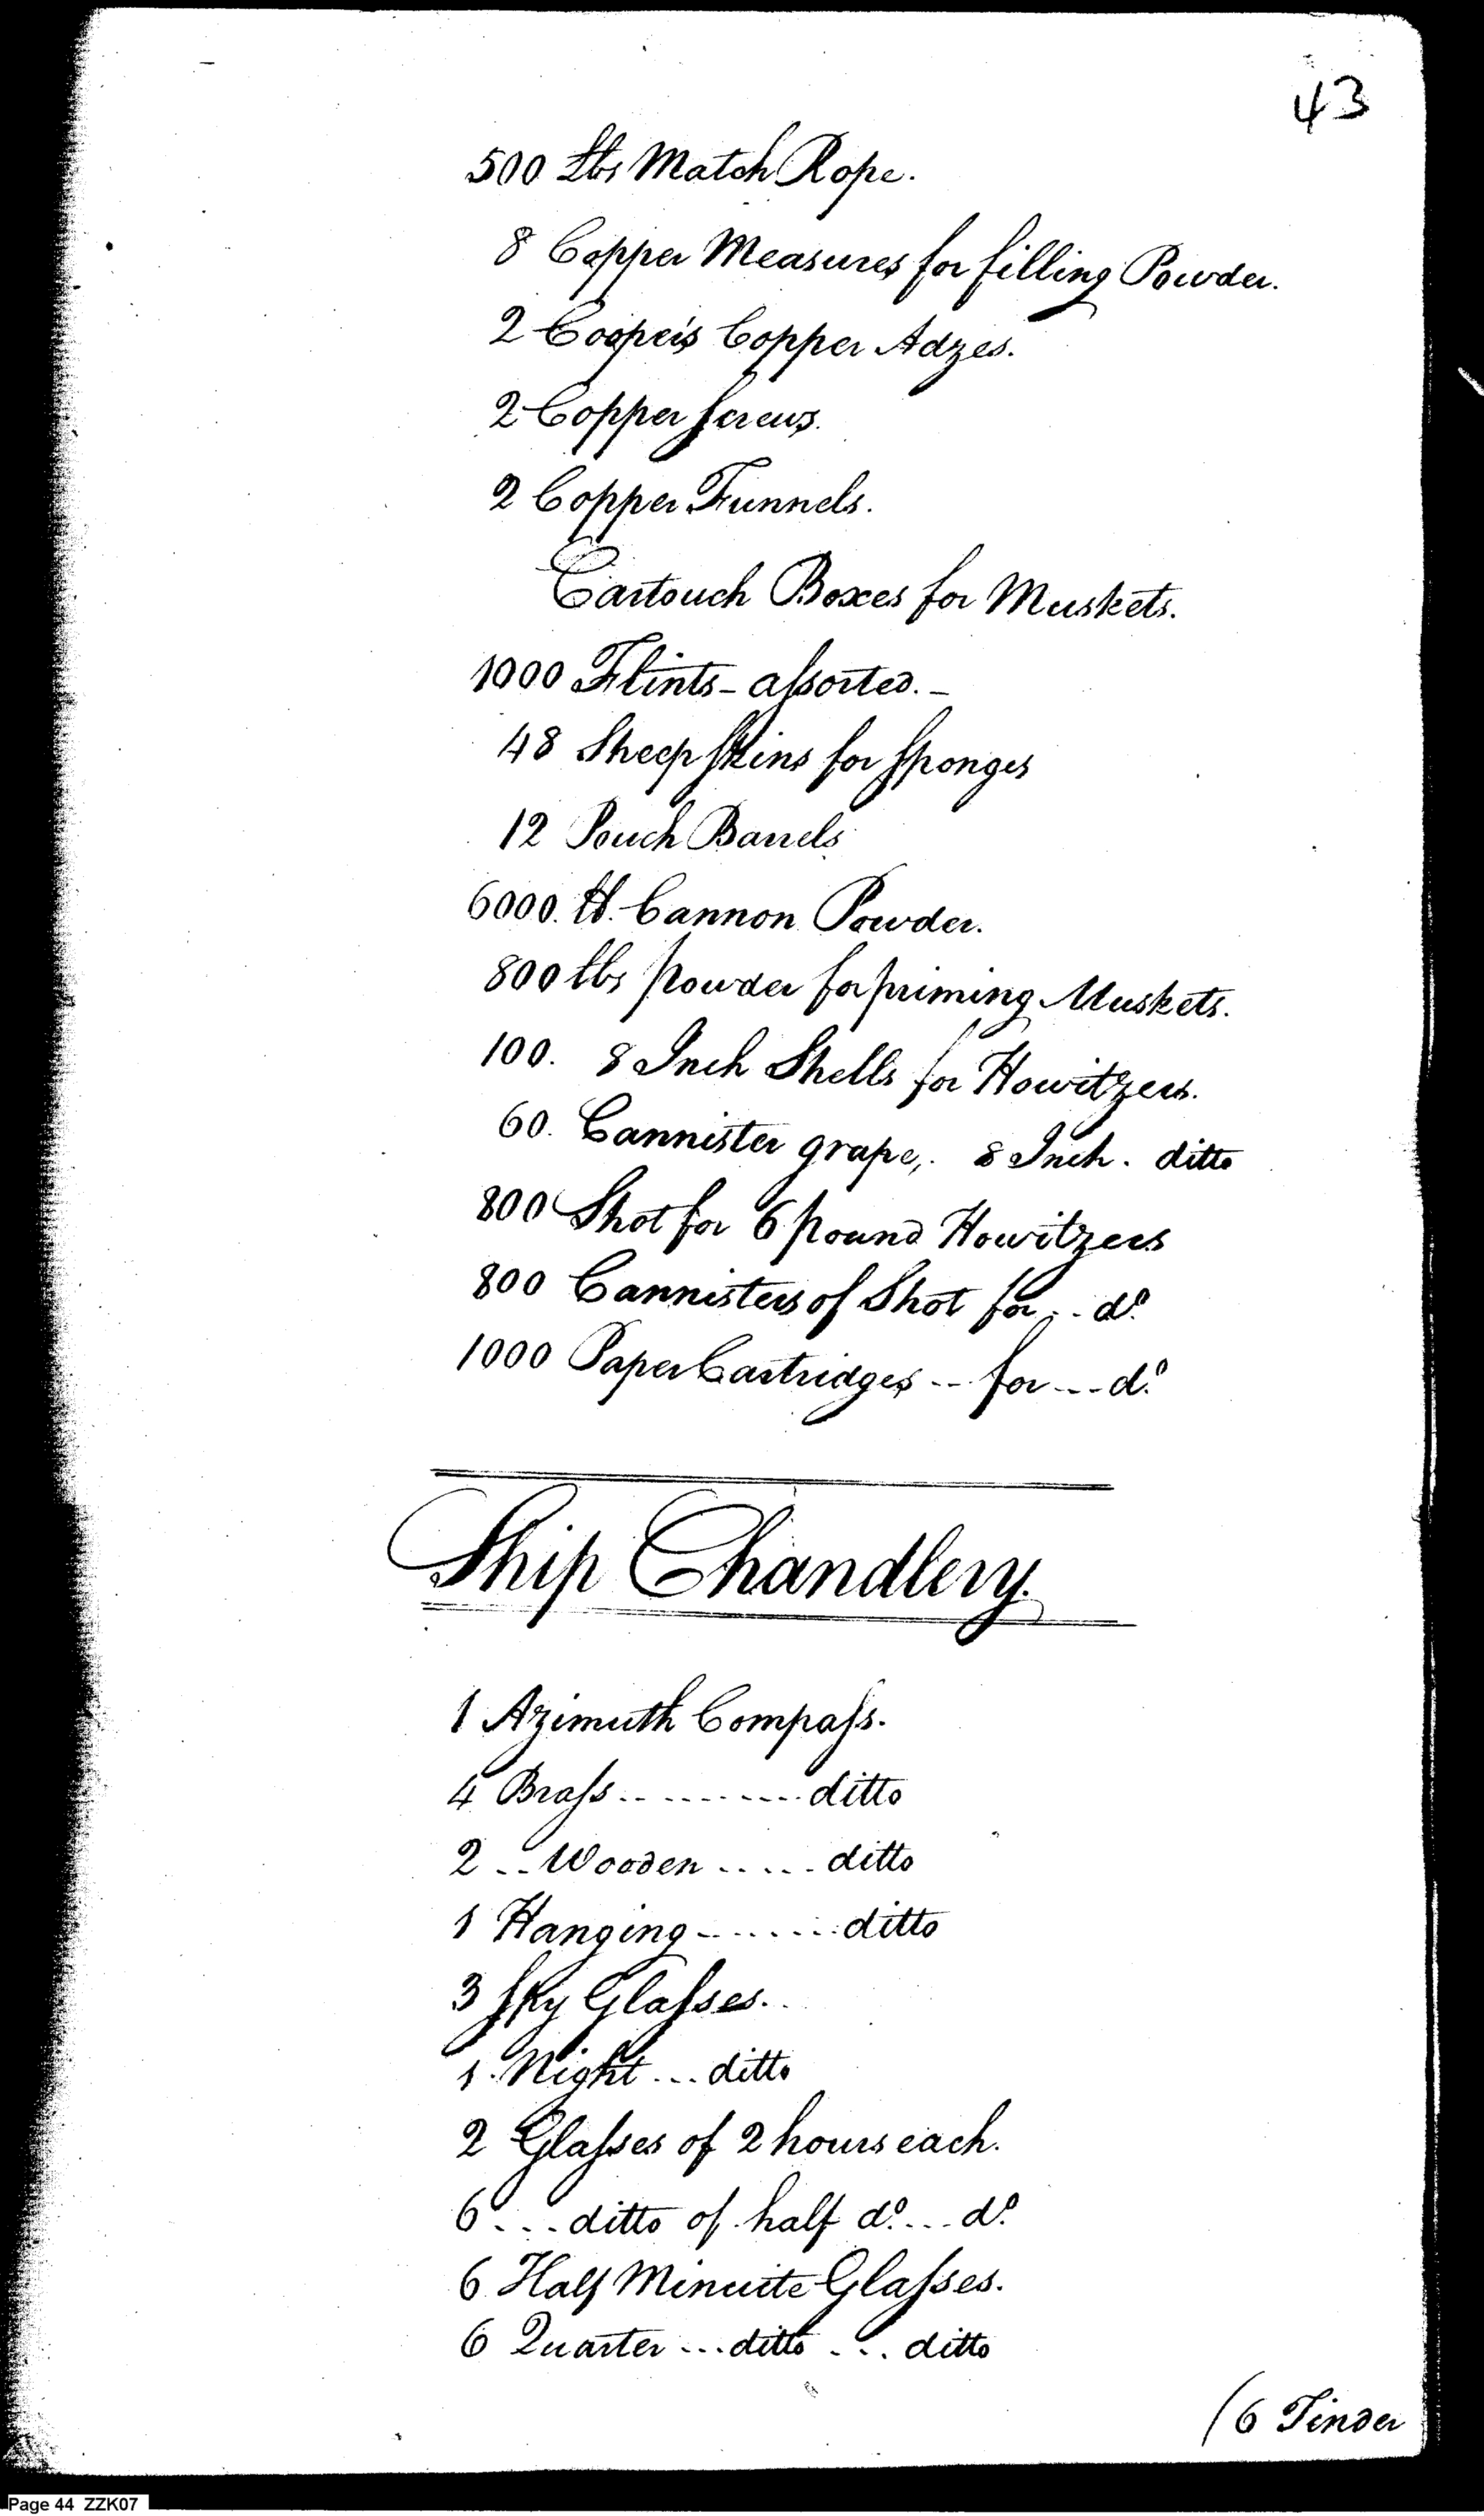 43
500 lbs Match Rope.
8 Copper Measures for filling Powder.
2 Cooper's Copper Adzes.
2 Copper Screws.
2 Copper Funnels.
Cartouch Boxes for Muskets.
1000 Flints - aſsorted. -
48 Sheep Skins for Sponges
12 Pouch Barrels
6000. lb. Cannon Powder.
800 lbs powder for priming Muskets.
100. 8 Inch Shells for Howitzers.
60. Cannister grape, 8 Inch. ditto
800 Shot for 6 pound Howitzers
800 Cannisters of Shot for... do.
1000 Paper Cartridges -- for --- do.
Ship Chandlery.
1 Azimuth Compaſs.
4 Braſs.......... ditto
2 .. Wooden ..... ditto
1 Hanging ....... ditto
3 Spy Glaſses..
1. Night ... ditto
2 Glaſses of 2 hours each.
6 ... ditto of half do. ... do.
6 Half Minuite Glaſses.
6 Quarter ... ditto ... ditto
(6 Tinder
Page 44 ZZK07